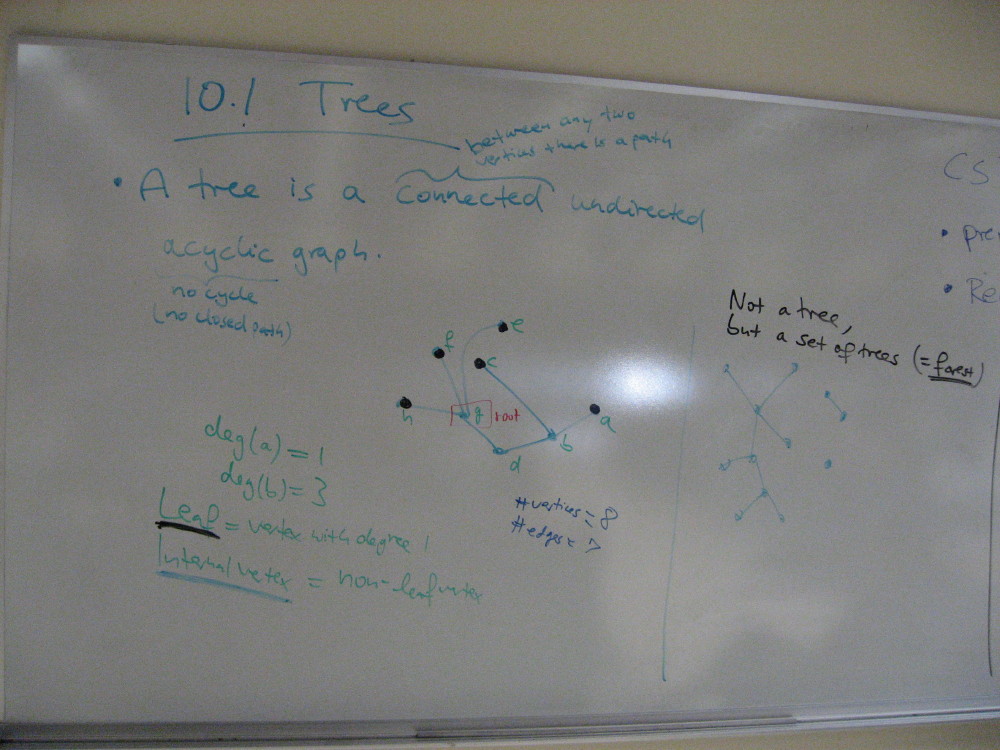 10.1 Trees
between any two
vertices there is a path
• A tree is a connected undirected
acyclic graph.
no cycle
(no closed path)
e
f
c
h
g root
a
b
d
deg(a) = 1
deg(b) = 3
Leaf = vertex with degree 1
Internal vertex = non-leaf vertex
# vertices = 8
# edges = 7
Not a tree,
but a set of trees (= forest)
CS
• pre
• Re